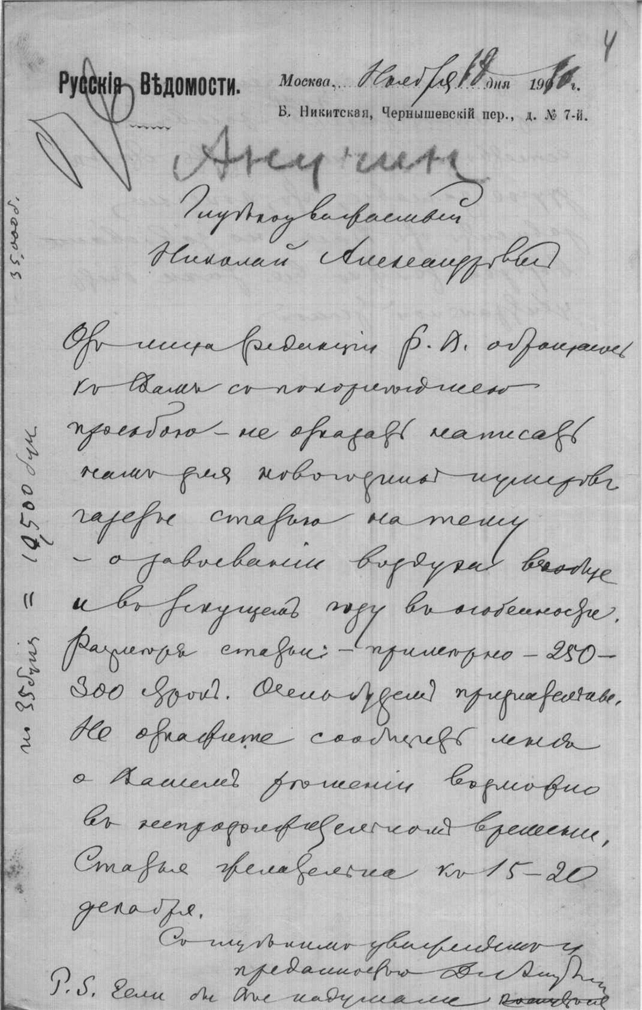 4
Русскія Вѣдомости.
Москва, Ноября 18 дня 1910 г.
Б. Никитская, Чернышевскій пер., д. № 7-й.
Анучин
Глубокоуважаемый
Николай Александровичъ
От лица Редакціи Р. В. обращаюсь
къ Вамъ съ покорнѣйшею
просьбою – не отказать написать
намъ для новогодняго нумера
газеты статью на тему
– о завоеваніи воздуха вообще
и въ текущемъ году въ особенности.
Размѣръ статьи: – примѣрно – 250–
300 строк. Очень будемъ признательны.
Не откажите сообщить мнѣ
о Вашемъ рѣшеніи возможно
въ непродолжительномъ времени.
Статья желательна къ 15–20
декабря.
Съ глубокимъ уваженіемъ и
преданностью Д. Анучин
P. S. Если бы Вы надумали
35.000 б.
по 35 букв = 10,500 букв